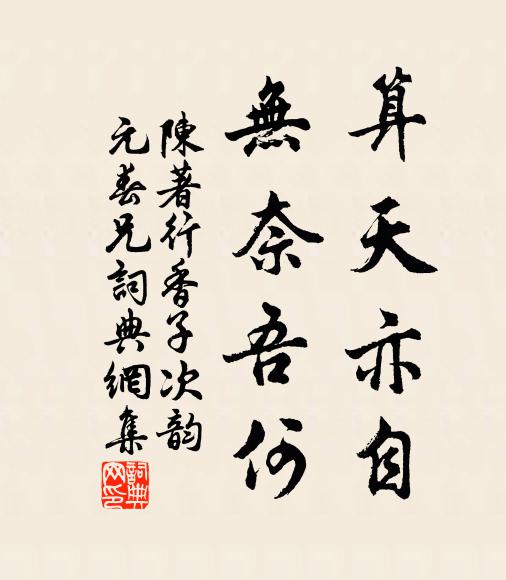 算天亦自
無奈吾何
陳著行香子次韵
元春兄詞典網集
詞典網印